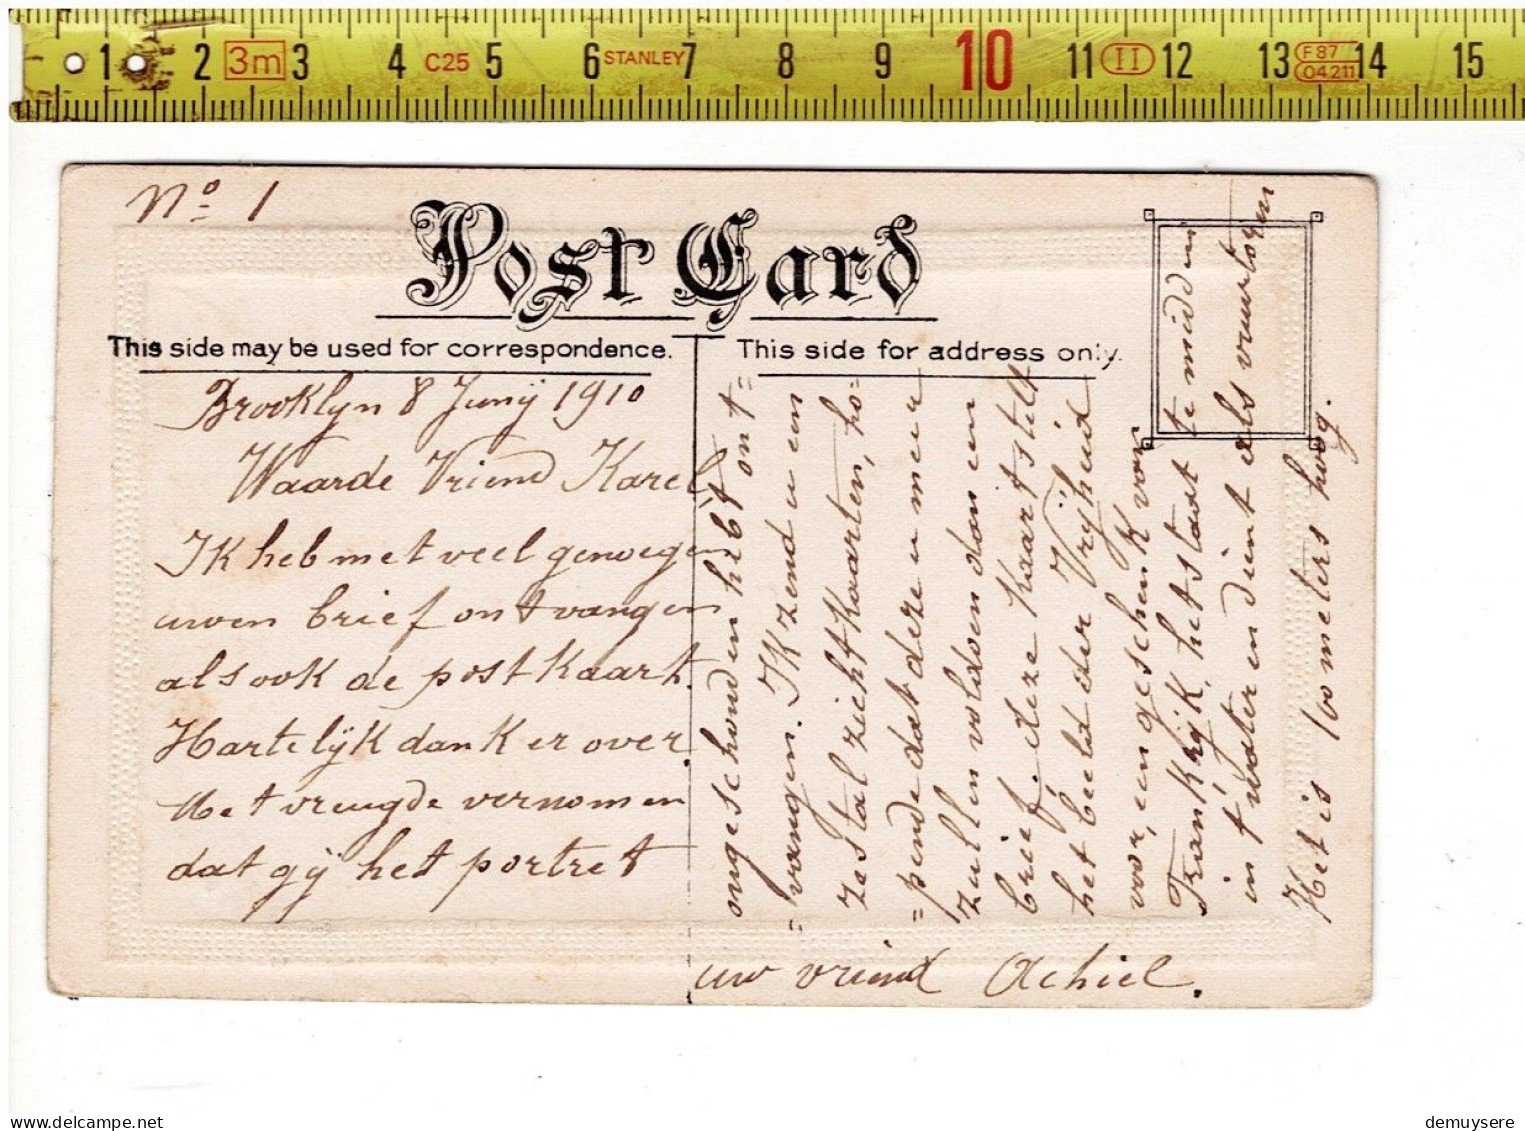 1 2 3m 3 4 C25 5 6 STANLEY 7 8 9 10 11 II 12 13 F87 04.211 14 15
No 1
Post Card
This side may be used for correspondence.
This side for address only.
Brooklyn 8 Junÿ 1910
Waarde Vriend Karel
Ik heb met veel genoegen
uwen brief ontvangen
alsook de postkaart.
Hartelÿk dank er over.
Met vreugde vernomen
dat gÿ het portret
ongeschonden hebt ont=
=vangen. Ik zend u een
zestal zichtkaarten, ho=
=pende dat deze u meer
zullen voldoen dan een
brief. deze kaart stelt
het beeld der Vrÿheid
voor, een geschenk van
Frankrÿk, het staat te midden
in t water en dient als vuurtoren
Het is 100 meters hoog.
uw vriend Achiel.
demuysere